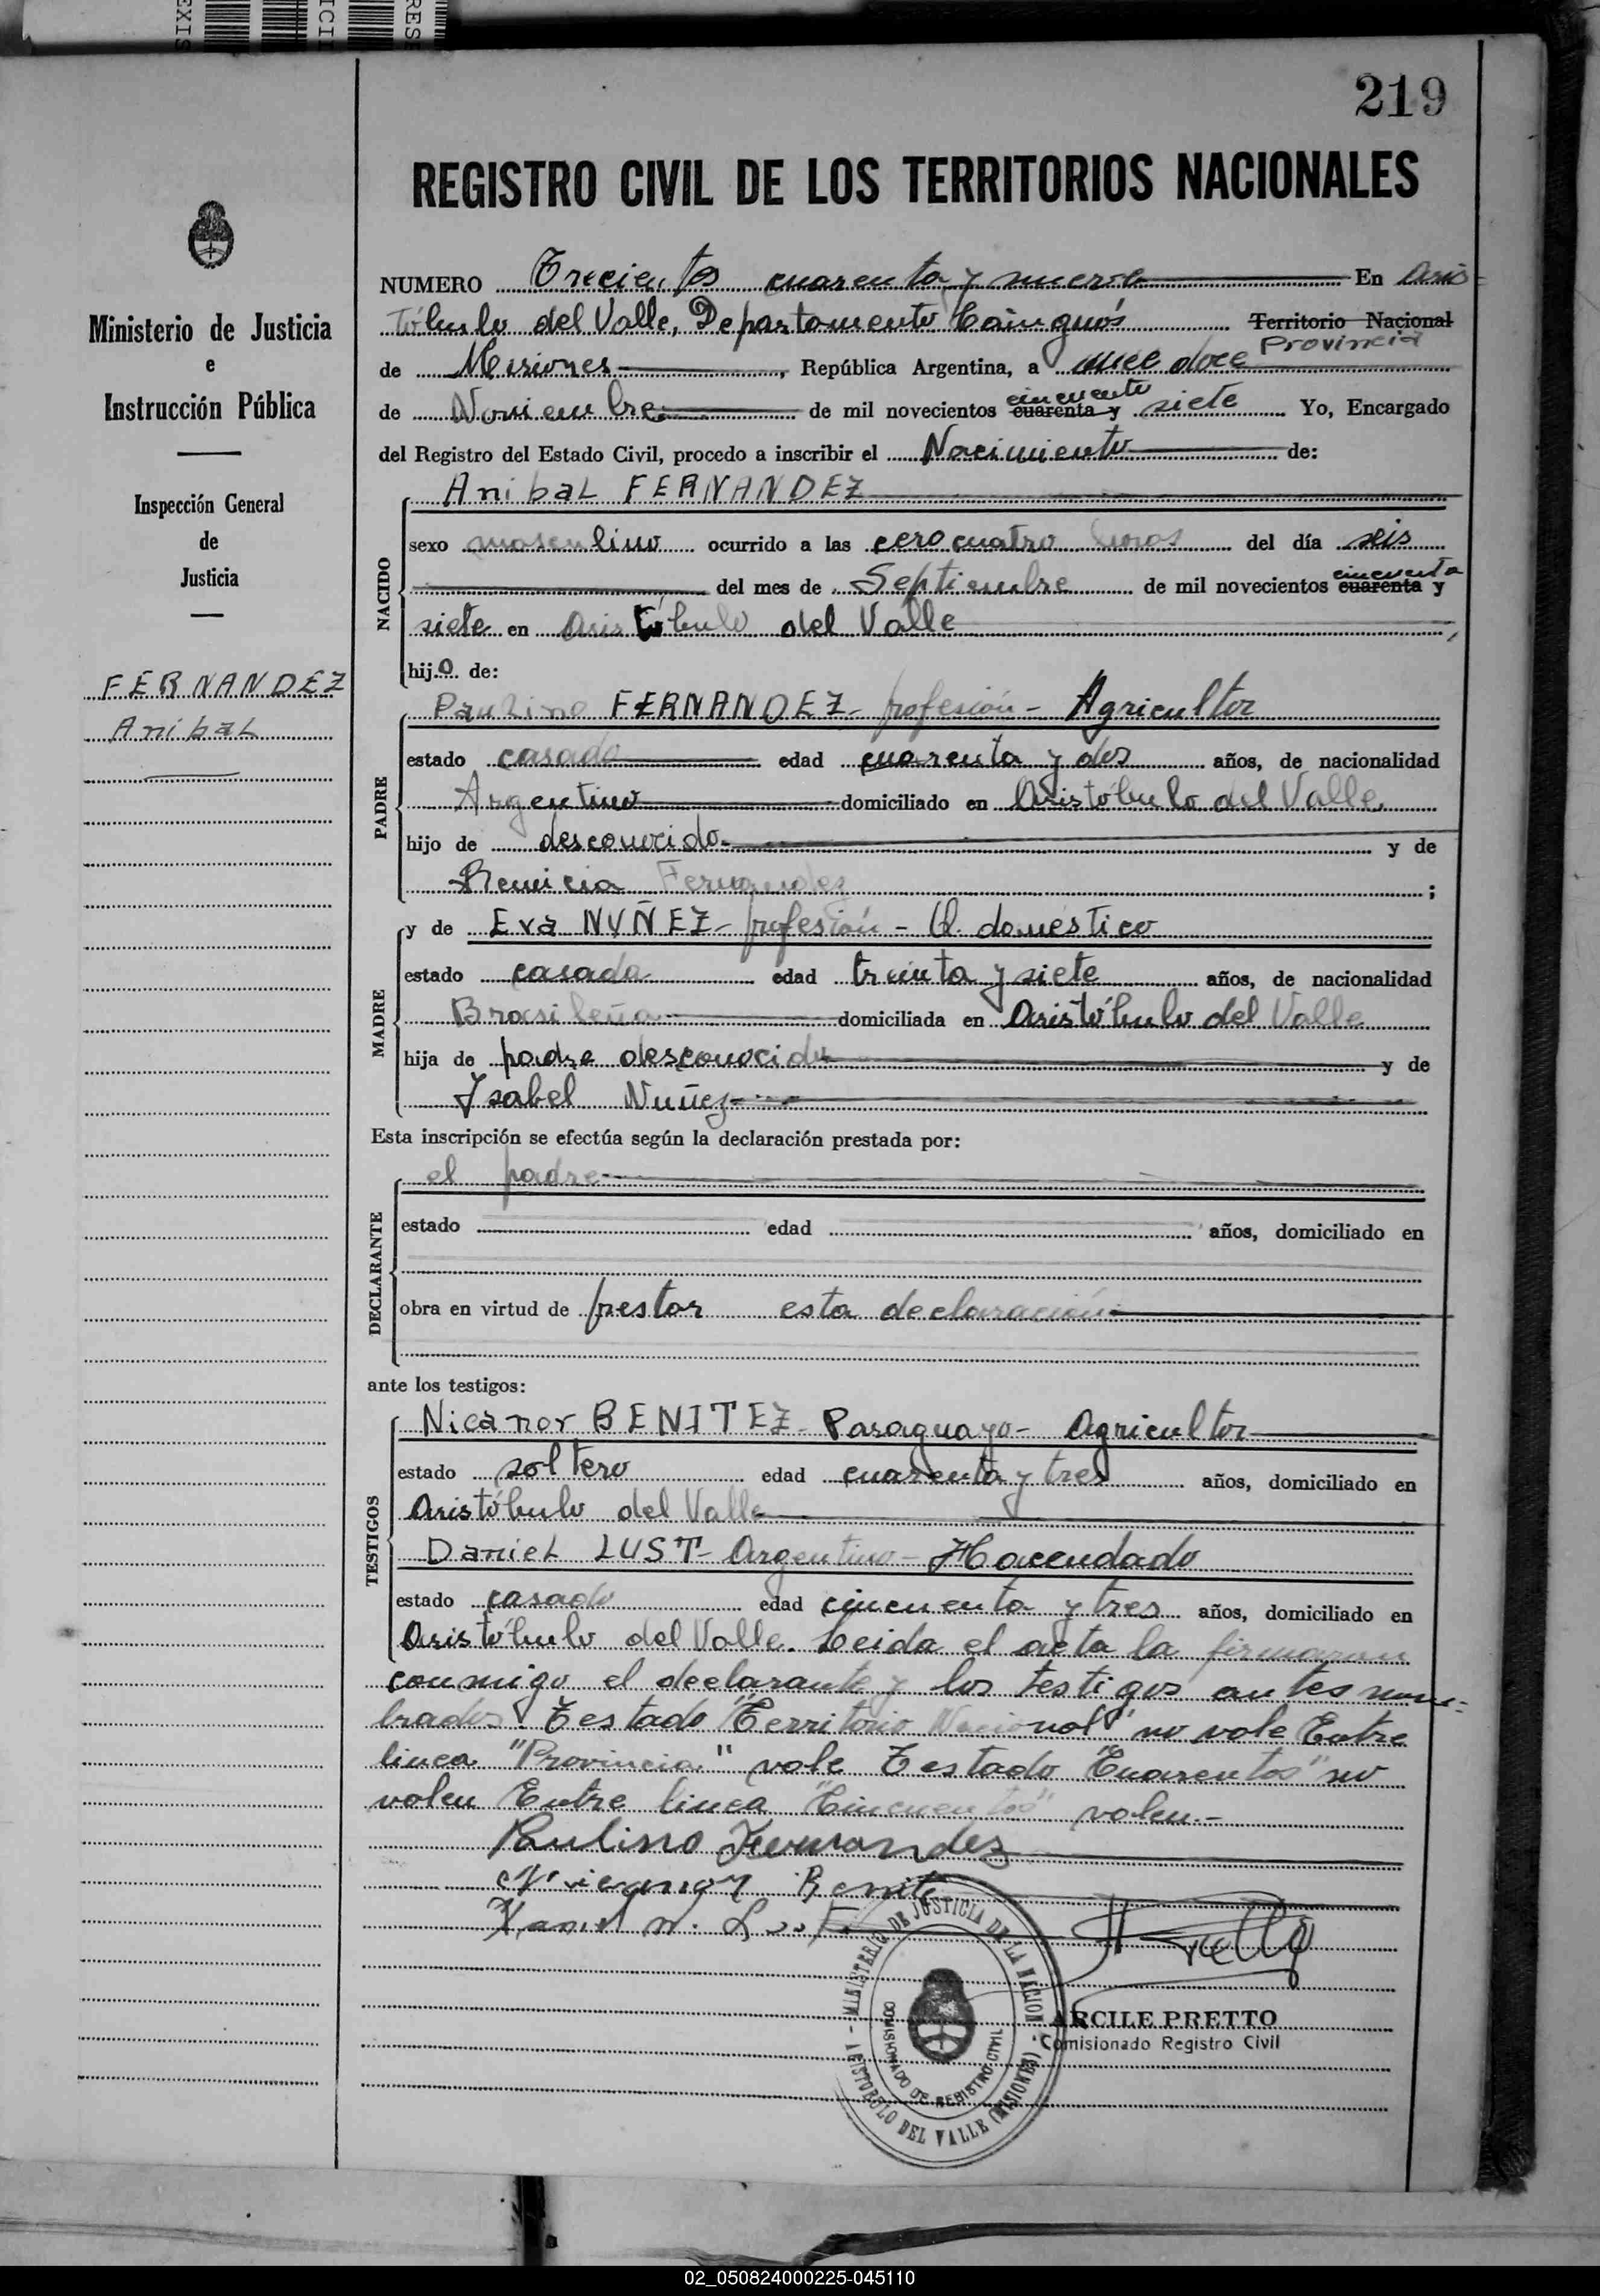 219
REGISTRO CIVIL DE LOS TERRITORIOS NACIONALES
Ministerio de Justicia
e
Instrucción Pública
Inspección General
de
Justicia
FERNANDEZ
Anibal
NUMERO Trecientos cuarenta y nueve En Aris
tóbulo del Valle, Departamento Cainguás Territorio Nacional
Provincia
de Misiones, República Argentina, a doce
cincuenta
de Noviembre de mil novecientos cuarenta y siete Yo, Encargado
del Registro del Estado Civil, procedo a inscribir el Nacimiento de:
NACIDO
Anibal FERNANDEZ
sexo masculino ocurrido a las cero cuatro horas del día seis
cincuenta
del mes de Septiembre de mil novecientos cuarenta y
siete en Aristóbulo del Valle
hijo de:
PADRE
Paulino FERNANDEZ- profesión - Agricultor
estado casado edad cuarenta y dos años, de nacionalidad
Argentino domiciliado en Aristóbulo del Valle
hijo de desconocido y de
Remicia Fernandez ;
MADRE
y de Eva NUÑEZ- profesión - Q. doméstico
estado casada edad treinta y siete años, de nacionalidad
Brasileña domiciliada en Aristóbulo del Valle
hija de padre desconocido y de
Isabel Nuñez
Esta inscripción se efectúa según la declaración prestada por:
DECLARANTE
el padre
estado edad años, domiciliado en
obra en virtud de prestar esta declaración
ante los testigos:
TESTIGOS
Nicanor BENITEZ- Paraguayo- Agricultor
estado soltero edad cuarenta y tres años, domiciliado en
Aristóbulo del Valle
Daniel LUST- Argentino- Hacendado
estado casado edad cincuenta y tres años, domiciliado en
Aristóbulo del Valle. Leida el acta la firmaran
conmigo el declarante y los testigos antes nom-
brados. Testado "Territorio Nacional" no vale Entre
linea "Provincia" vale Testado "Cuarentas" no
valen Entre linea "Cincuentas" valen.-
Paulino Fernandez
Nicanor Benite
Daniel Lust
MINISTERIO DE JUSTICIA DE LA NACION
COMISIONADO DE REGISTRO CIVIL
ARISTOBULO DEL VALLE (MISIONES)
ARCILE PRETTO
Comisionado Registro Civil
02_050824000225-045110